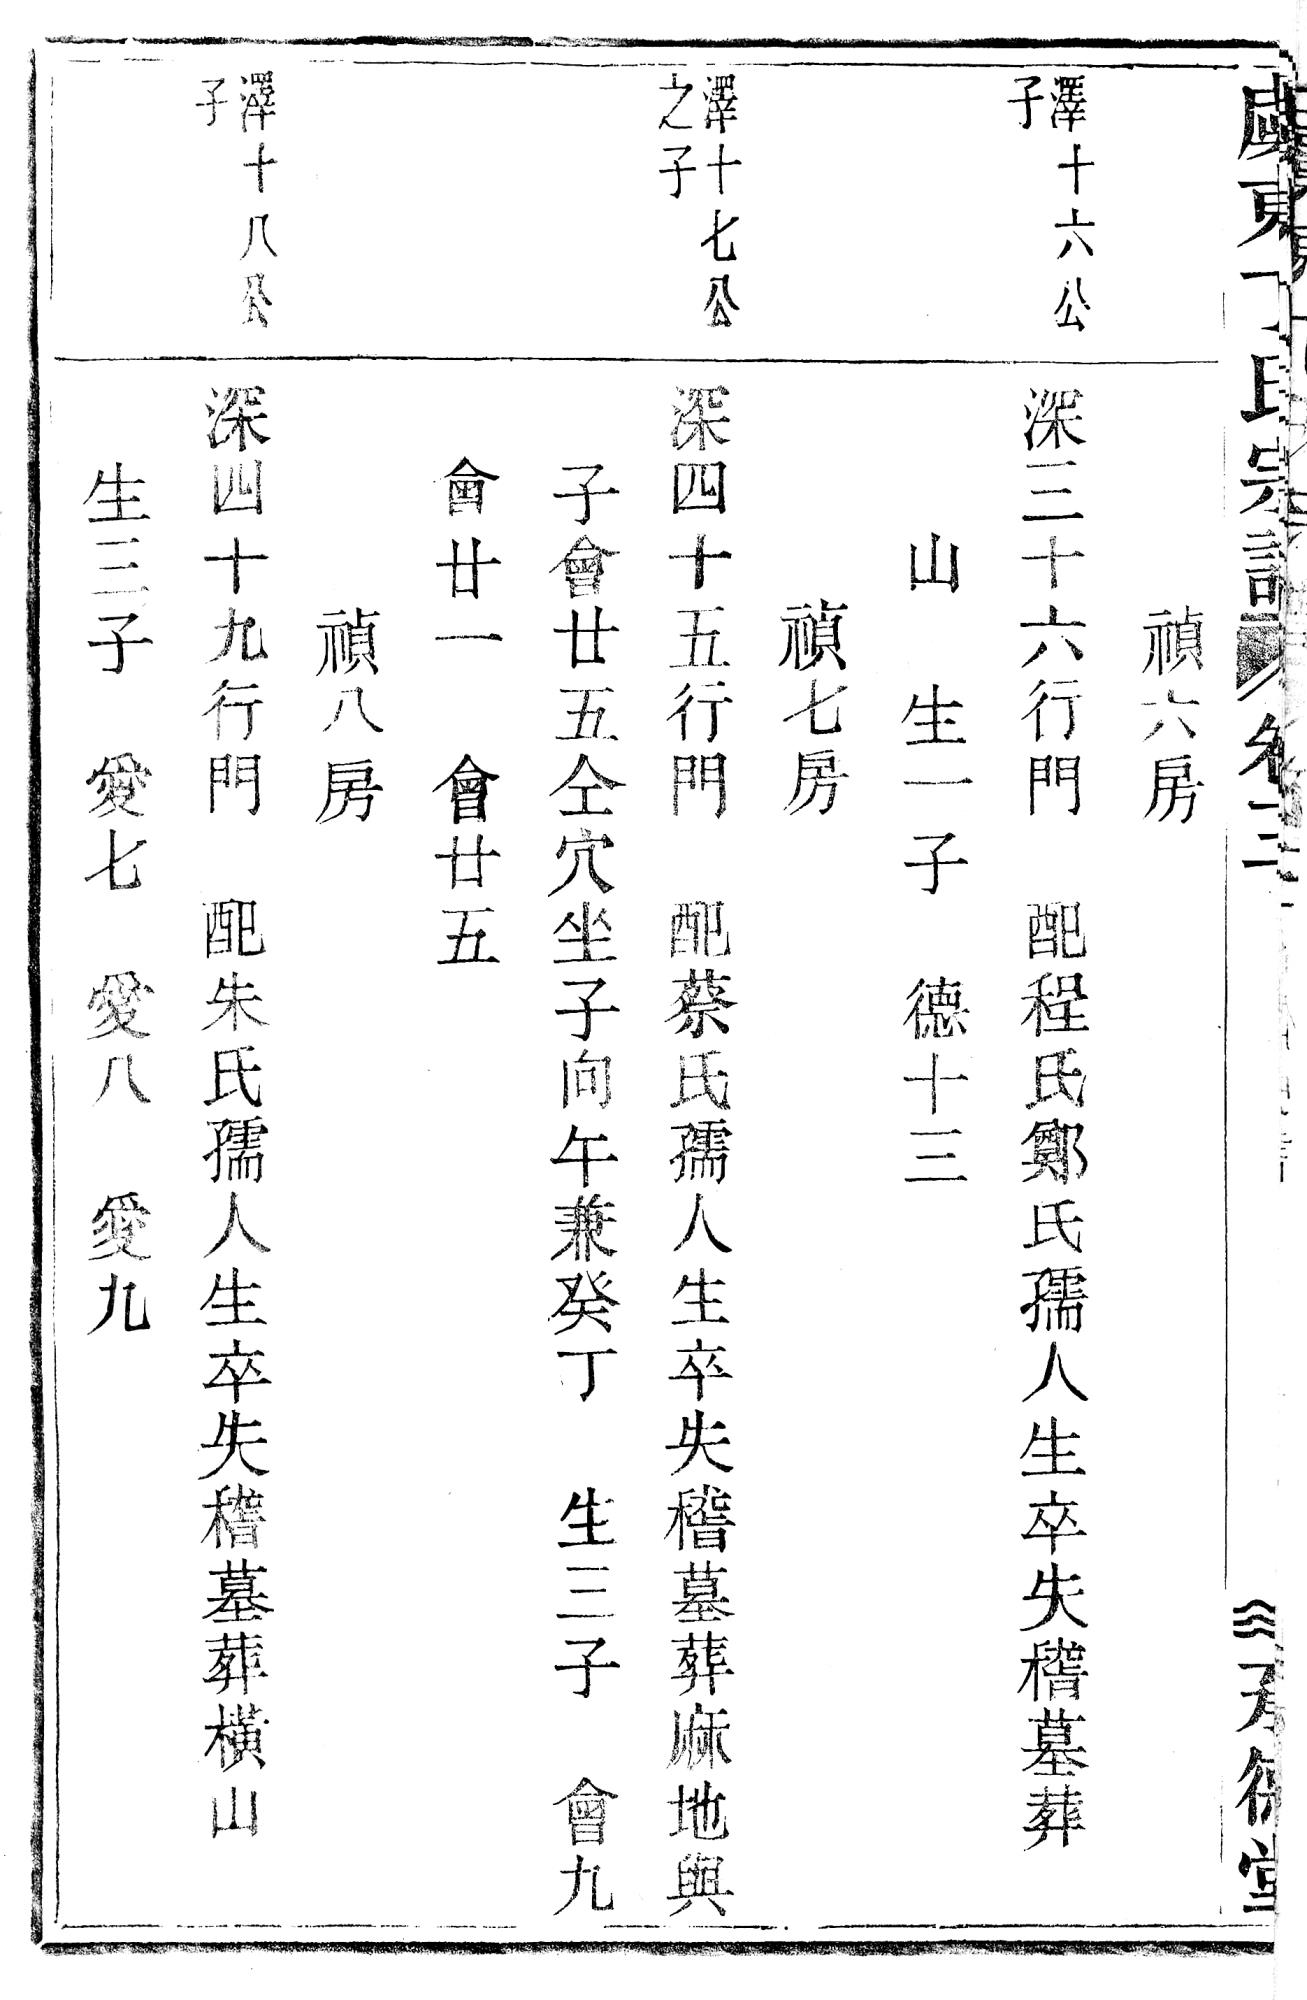 東丁氏宗譜 卷三 承德堂
禎六房
澤十六公
子
深三十六行門 配程氏鄭氏孺人生卒失稽墓葬
山 生一子 德十三
禎七房
澤十七公
之子
深四十五行門 配蔡氏孺人生卒失稽墓葬麻地與
子會廿五仝穴坐子向午兼癸丁 生三子 會九
會廿一 會廿五
禎八房
澤十八公
子
深四十九行門 配朱氏孺人生卒失稽墓葬橫山
生三子 愛七 愛八 愛九